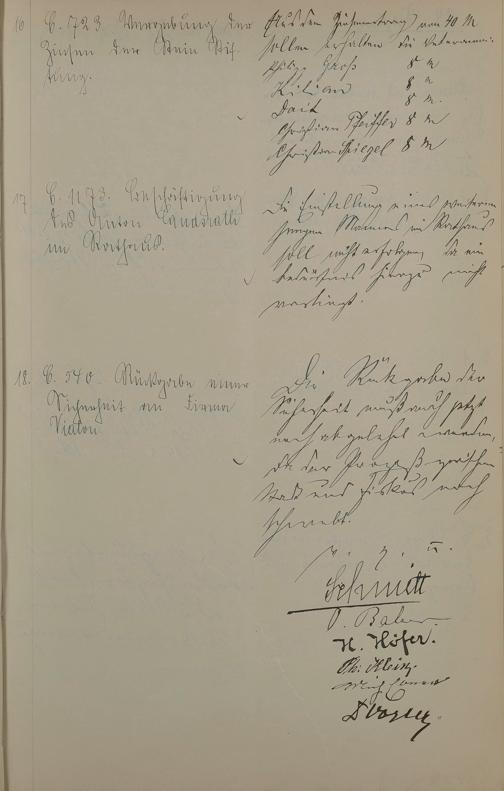 16 B. 723. Vergebung der
Zinsen der Stein Stif-
tung.
Aus dem Zinsenertrag von 40 M
sollen erhalten die Veteranen:
Philipp Groß 8 M
Kilian 8 M
Dait 8 M.
Christian Pfeiffer 8 M
Christian Spiegel 8 M
17 B. 1173. Beschäftigung
des Anton
im Rathaus.
Die Einstellung eines weiteren
jungen Mannes im Rathaus
soll nicht erfolgen, da ein
Bedürfnis hierzu nicht
vorliegt.
18. B. 540. Rückgabe einer
Sicherheit an Firma
Vialon
Die Rückgabe der
Sicherheit muß auch jetzt
noch abgelehnt werden,
da der Prozeß zwischen
Stadt und Fiskus noch
schwebt.
v. g. u.
Schmitt
H. Höfer.
Ph. Klein.